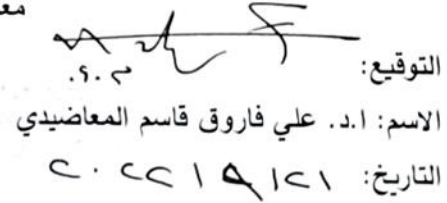 مع
م.و.
التوقيع:
الاسم: ا.د. علي فاروق قاسم المعاضيدي
التاريخ: ٢٠٢٢/٩/٢١